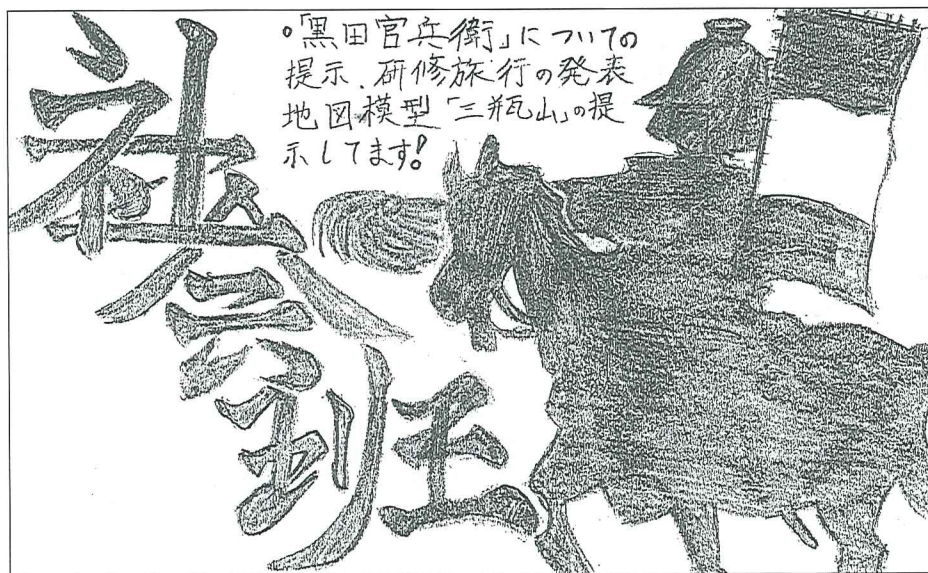 。「黒田官兵衛」についての
提示、研修旅行の発表
地図模型「三瓶山」の提
示してます!
社会班